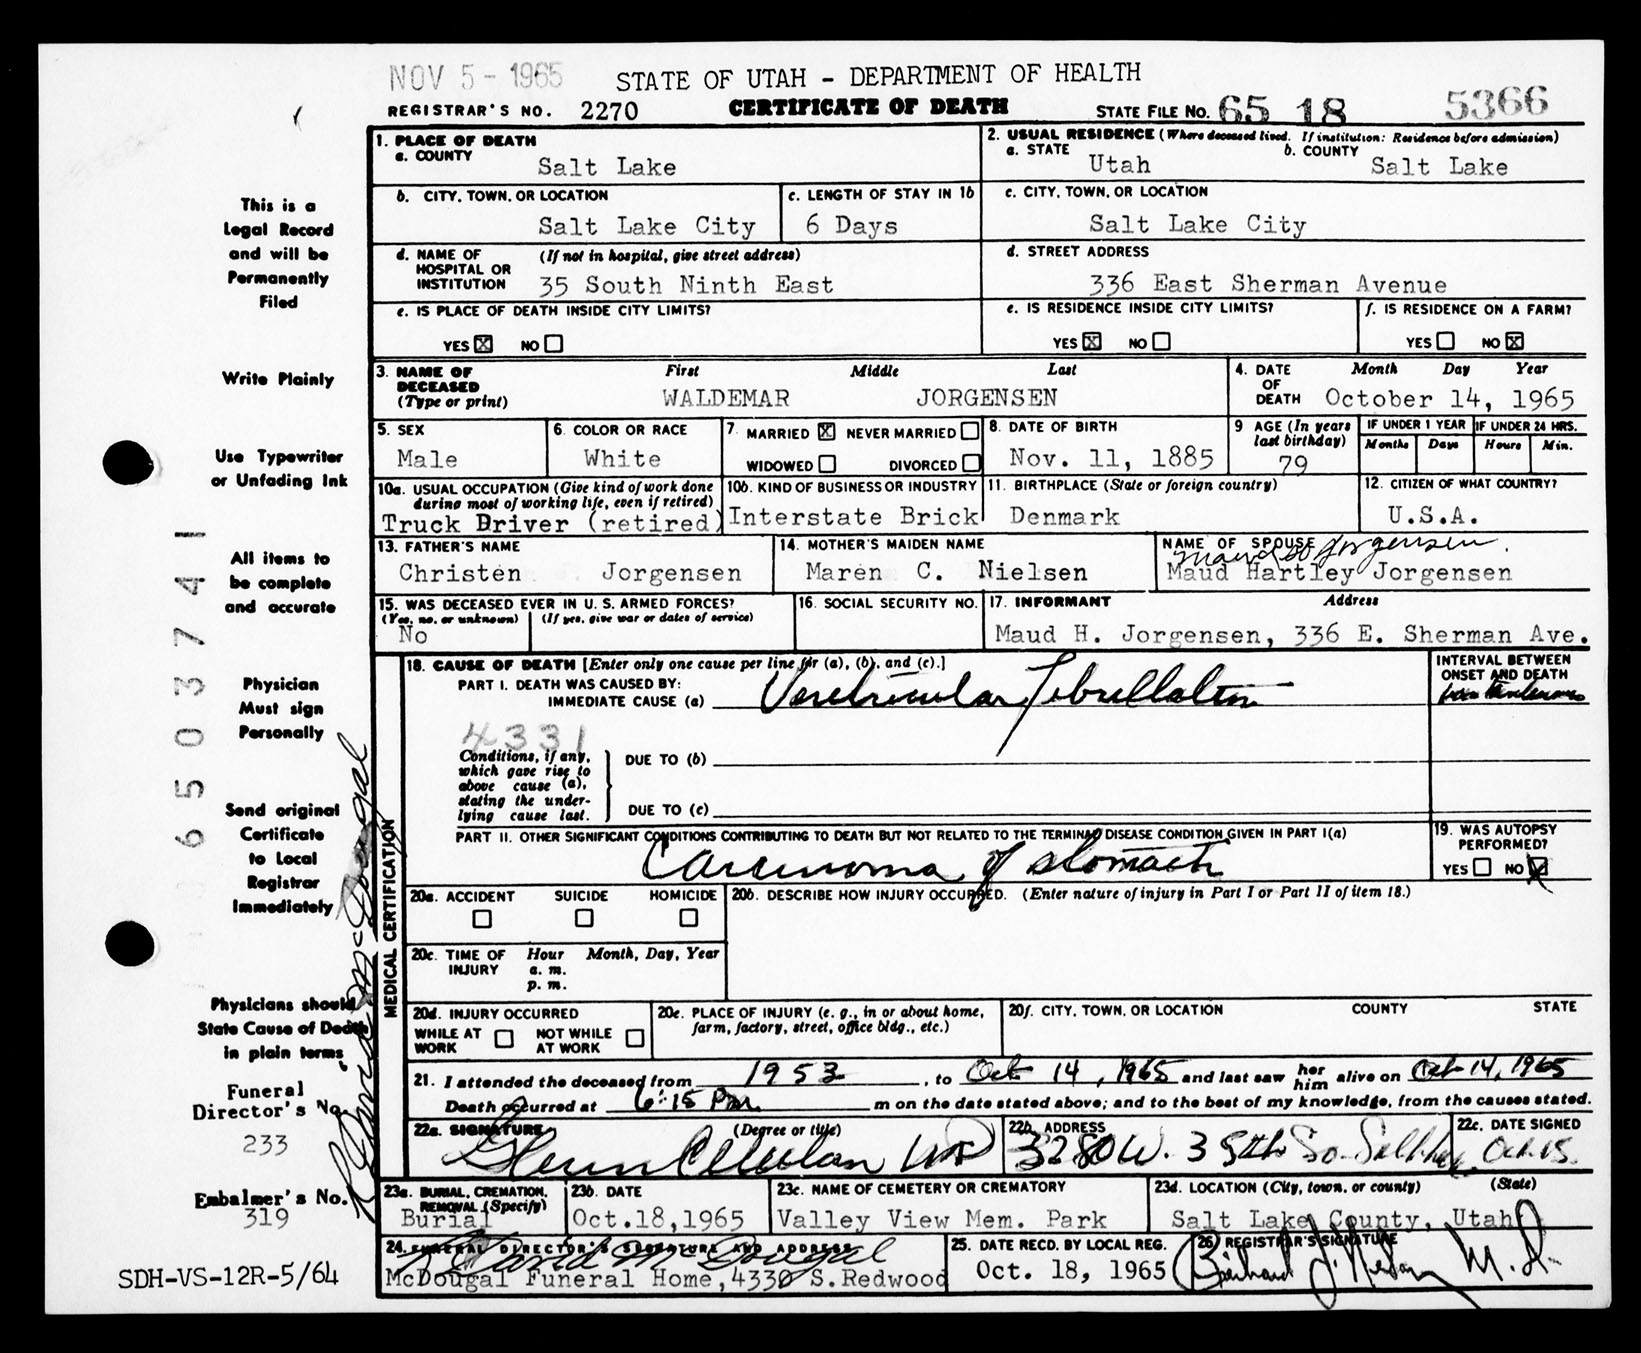 NOV 5 - 1965 STATE OF UTAH - DEPARTMENT OF HEALTH
REGISTRAR'S NO. 2270 CERTIFICATE OF DEATH STATE FILE NO. 65 18 5366
1. PLACE OF DEATH
a. COUNTY
Salt Lake
2. USUAL RESIDENCE (Where deceased lived. If institution: Residence before admission)
a. STATE b. COUNTY
Utah Salt Lake
b. CITY, TOWN, OR LOCATION
Salt Lake City
c. LENGTH OF STAY IN 1b
6 Days
c. CITY, TOWN, OR LOCATION
Salt Lake City
d. NAME OF HOSPITAL OR INSTITUTION (If not in hospital, give street address)
35 South Ninth East
d. STREET ADDRESS
336 East Sherman Avenue
e. IS PLACE OF DEATH INSIDE CITY LIMITS?
YES X NO
e. IS RESIDENCE INSIDE CITY LIMITS?
YES X NO
f. IS RESIDENCE ON A FARM?
YES NO X
3. NAME OF DECEASED (Type or print)
First Middle Last
WALDEMAR JORGENSEN
4. DATE OF DEATH
Month Day Year
October 14, 1965
5. SEX
Male
6. COLOR OR RACE
White
7. MARRIED X NEVER MARRIED
WIDOWED DIVORCED
8. DATE OF BIRTH
Nov. 11, 1885
9 AGE (In years last birthday)
79
IF UNDER 1 YEAR
Months Days
IF UNDER 24 HRS.
Hours Min.
10a. USUAL OCCUPATION (Give kind of work done
during most of working life, even if retired)
Truck Driver (retired)
10b. KIND OF BUSINESS OR INDUSTRY
Interstate Brick
11. BIRTHPLACE (State or foreign country)
Denmark
12. CITIZEN OF WHAT COUNTRY?
U.S.A.
13. FATHER'S NAME
Christen Jorgensen
14. MOTHER'S MAIDEN NAME
Maren C. Nielsen
NAME OF SPOUSE
Maud Hartley Jorgensen
15. WAS DECEASED EVER IN U. S. ARMED FORCES?
(Yes, no, or unknown) (If yes, give war or dates of service)
No
16. SOCIAL SECURITY NO.
17. INFORMANT Address
Maud H. Jorgensen, 336 E. Sherman Ave.
MEDICAL CERTIFICATION
18. CAUSE OF DEATH [Enter only one cause per line for (a), (b), and (c).]
PART I. DEATH WAS CAUSED BY:
IMMEDIATE CAUSE (a) Ventricular Fibrillation
INTERVAL BETWEEN ONSET AND DEATH
4331
Conditions, if any, which gave rise to above cause (a), stating the underlying cause last.
DUE TO (b)
DUE TO (c)
PART II. OTHER SIGNIFICANT CONDITIONS CONTRIBUTING TO DEATH BUT NOT RELATED TO THE TERMINAL DISEASE CONDITION GIVEN IN PART I(a)
Carcinoma of stomach
19. WAS AUTOPSY PERFORMED?
YES NO X
20a. ACCIDENT SUICIDE HOMICIDE
20b. DESCRIBE HOW INJURY OCCURRED. (Enter nature of injury in Part I or Part II of item 18.)
20c. TIME OF INJURY Hour Month, Day, Year
a. m.
p. m.
20d. INJURY OCCURRED
WHILE AT WORK NOT WHILE AT WORK
20e. PLACE OF INJURY (e. g., in or about home,
farm, factory, street, office bldg., etc.)
20f. CITY, TOWN, OR LOCATION COUNTY STATE
21. I attended the deceased from 1953, to Oct 14, 1965 and last saw her him alive on Oct 14, 1965
Death occurred at 6:15 Pm. m on the date stated above; and to the best of my knowledge, from the causes stated.
22a. SIGNATURE (Degree or title)
22b. ADDRESS
3280 W. 35th So.
22c. DATE SIGNED
Oct. 15.
23a. BURIAL, CREMATION, REMOVAL (Specify)
Burial
23b. DATE
Oct.18,1965
23c. NAME OF CEMETERY OR CREMATORY
Valley View Mem. Park
23d. LOCATION (City, town, or county) (State)
Salt Lake County, Utah
24. FUNERAL DIRECTOR'S SIGNATURE AND ADDRESS
R David McDougal
McDougal Funeral Home, 4330 S.Redwood
25. DATE RECD. BY LOCAL REG.
Oct. 18, 1965
26. REGISTRAR'S SIGNATURE
M.D.
This is a
Legal Record
and will be
Permanently
Filed
Write Plainly
Use Typewriter
or Unfading Ink
All items to
be complete
and accurate
Physician
Must sign
Personally
Send original
Certificate
to Local
Registrar
Immediately
Physicians should
State Cause of Death
in plain terms
Funeral
Director's No.
233
Embalmer's No.
319
SDH-VS-12R-5/64
6503741
R David McDougal